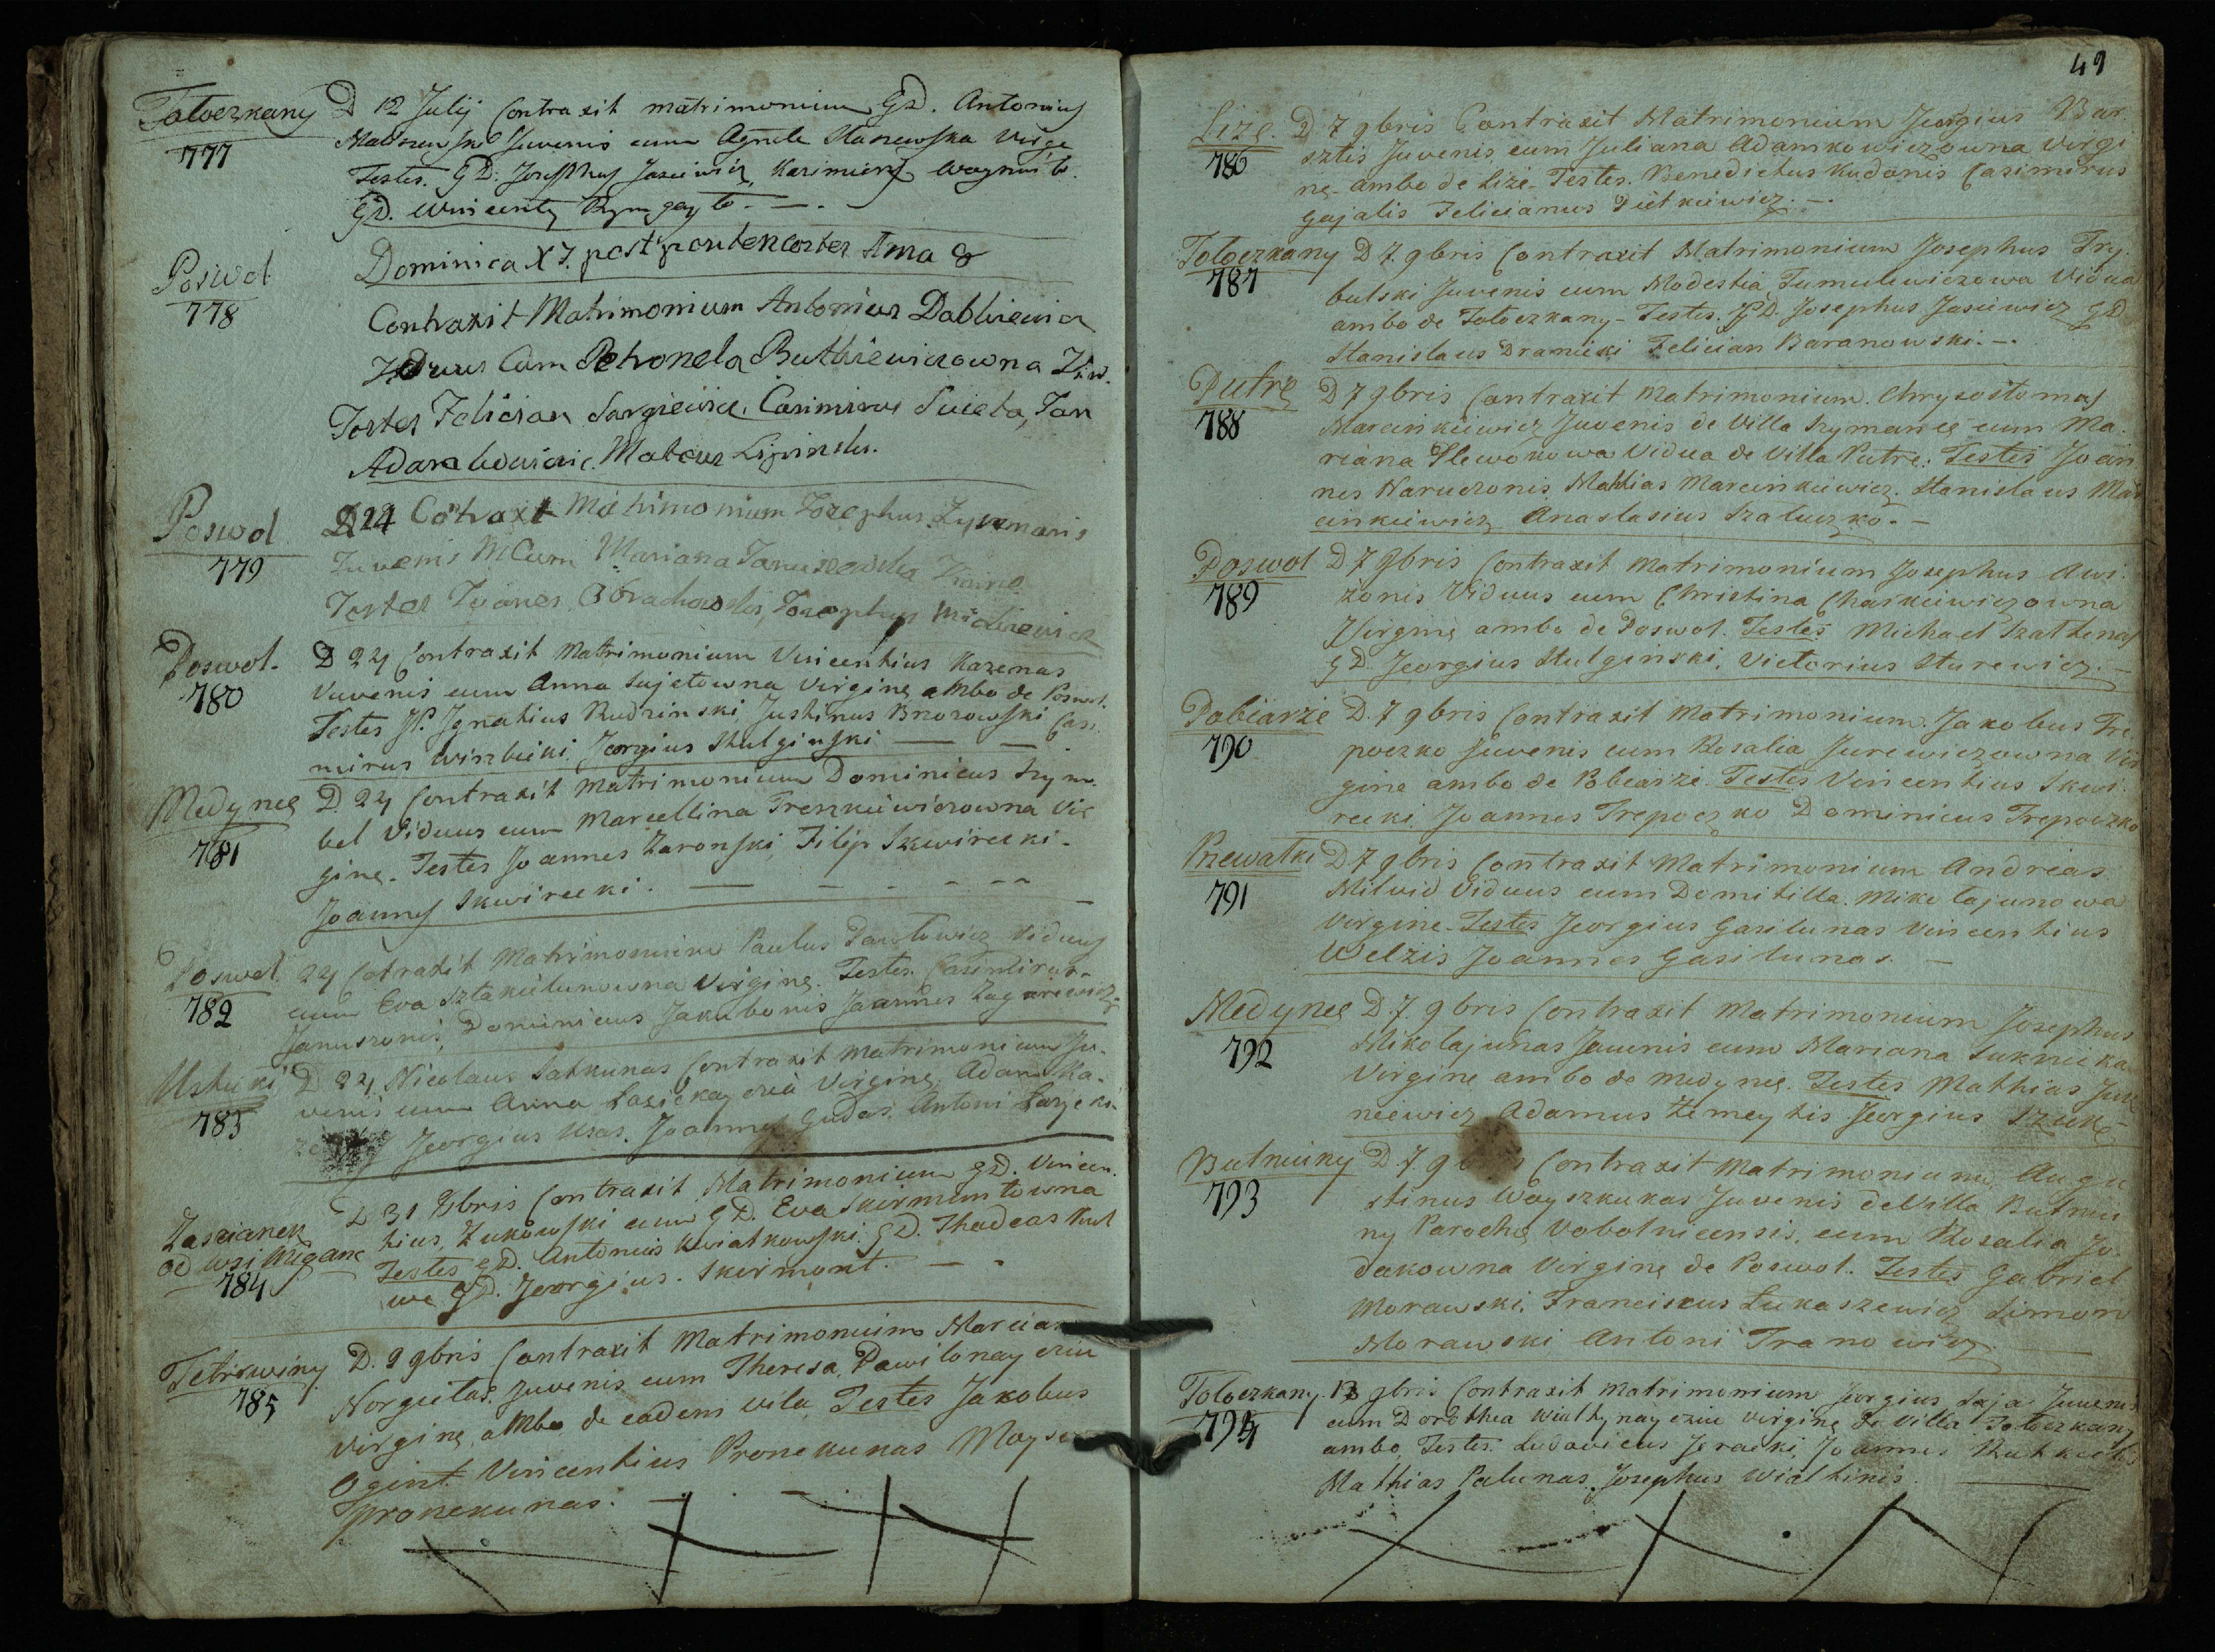 Tołoczkany
777
D 12 Julij Contraxit matrimonium GD. Antonius
Juvenis cum Agnete Staszewska Virge
Testes. GD. Josephus Jasiewicz, Kazimierz Woynniło.
GD. Wincenty Rymgayło. —.
Poswol
778
Dominica XI. post pentencostes Ama 8
Contraxit Matrimonium Antonius Dabkiewicz
Viduus Cum Petronela Butkiewiczowna Viw.
Testes Felician Sargiewicz, Casimirus Swieta, Jan
Adamkowicz. Mateus Lipinski.
Poswol
779
D 24 Cotraxt Matrimonium Josephus Zymanis
Juvenis M Cum Mariana Januszewska
Testes Joanes Obrachowski, Josephus Mickiewicz
Poswol.
780
D 24 Contraxit Matrimonium Vincentius Kazenas
Vuvenis cum Anna Sujetowna Virginę ambo de Poswol.
Testes JP. Ignatius Rudzinski, Justinus Brozowski Casi
mirus Wirzbicki, Jeorgius Stulginski — —.
Medynec
781
D. 24 Contraxit matrimonium Dominicus Szym
bel Viduus cum Marcellina Treszkiewiczowna Vir
ginę. Testes Joannes Zaronski, Filip Skwirecki.
Joannes Skwirecki. — — - - - -
Poswol
782
24 Cotraxit Matrimonium Paulus Pawłowicz Viduus
cum Eva Sztakielunowna Virginę. Testes. Casimirus
Januszonis, Dominicus Jakubonis Joannes Zagariewicz
Ustuki
783
D 24 Nicolaus Satkunas Contraxit matrimonium Ju-
venis cum Anna Łazickayczia Virginę. Adam Ka-
Jeorgius Usas. Joannes Gudas. Antoni Łazycki.
Zascianek
od wsi Migani
784
D 31 8bris Contraxit Matrimonium GD. Vincen
tius, Zukowski cum GD. Eva Skirmuntowna
Testes GD. Antonius Kwiatkowski. GD. Thadeas
wa GD. Jeorgius. Skirmont. — -
Tetirwiny
785
D. 2 9bris Contraxit Matrimonium Marcian
Norgietas. Juvenis cum Theresa Pawiłonayczia
Virginę ambo de eadem villa Testes Jakobus
Ogint. Vincentius Pronckunas Moyses
Pronckunas. — . — .
49
Liże.
786
D 7 9bris Contraxit Matrimonium Jeorgius Bar
sztis Juvenis, cum Juliana Adamkowiczowna Virgi
nę ambo de Liże. Testes. Benedictus Kudonis Casimirus
Gajalis Felicianus Pietkiewicz. —.
Tołoczkany
787
D 7. 9bris Contraxit Matrimonium Josephus Try
bulski Juvenis cum Modestia Tumulewiczowa Vidua
ambo de Tołoczkany - Testes. GD. Josephus Jasiewicz GD
Stanislaus Dranicki Felician Baranowski. —.
Putrę
788
D 7 9bris Contraxit Matrimonium. Chrysostomas
Marcinkiewicz Juvenis de Villa Szymance cum Ma-
riana Slewokowa Vidua de Villa Putre. Testes Joan
nes Naruszonis, Mathias Marcinkiewicz. Stanislaus Mar
cinkiewicz Anastasius Szatuszko. —
Poswol
789
D 7 9bris Contraxit Matrimonium Josephus Awi
zonis Viduus cum Christina Chaskiewiczowna
Virginę ambo de Poswol. Testes Michael Szathenas
GD. Jeorgius Stulginski, Victorius Sturewicz. —
Pabiarże
790
D. 7 9bris Contraxit Matrimonium. Jakobus Tre
poczko Juvenis cum Rosalia Jurewiczowna Vir
gine ambo de Pobiarże. Testes Vincentius Skwi
recki, Joannes Trepoczko Dominicus Trepoczko
Przewałki
791
D 7 9bris Contraxit Matrimonium Andreas
Milwid Viduus cum Domitilla. Mikołajunowa
Virgine. Testes Jeorgius Gasilunas Vincentius
Welzis Joannes Gasilunas. —
Medynec
792
D. 7. 9bris Contraxit Matrimonium Josephus
Mikołajunas Juvenis cum Mariana Sukniecka
Virgine ambo de Medynie. Testes Mathias Juk
niewicz Adamus Zemeytis Jeorgius Szuke
Butniuny
793
D. 7. 9 Contraxit Matrimonium. Augu
stinus Woyszkukas Juvenis de Villa Butniu
ny Parochę Vobolnicensis, cum Rosalia Jo-
dakowna Virginę de Poswol. Testes Gabriel
Morawski, Franciscus Łukaszewicz Simon
Morawski Antoni Tranowicz. —
Tołoczkany.
794
13 9bris Contraxit Matrimonium Jeorgius Saja Juvenis
cum Dorothea Wialtynayczia Virginę de Villa Tołoczkany
ambo, Testes. Ludovicus Jeracki, Joannes
Mathias Palunas. Josephus Wialtinis —